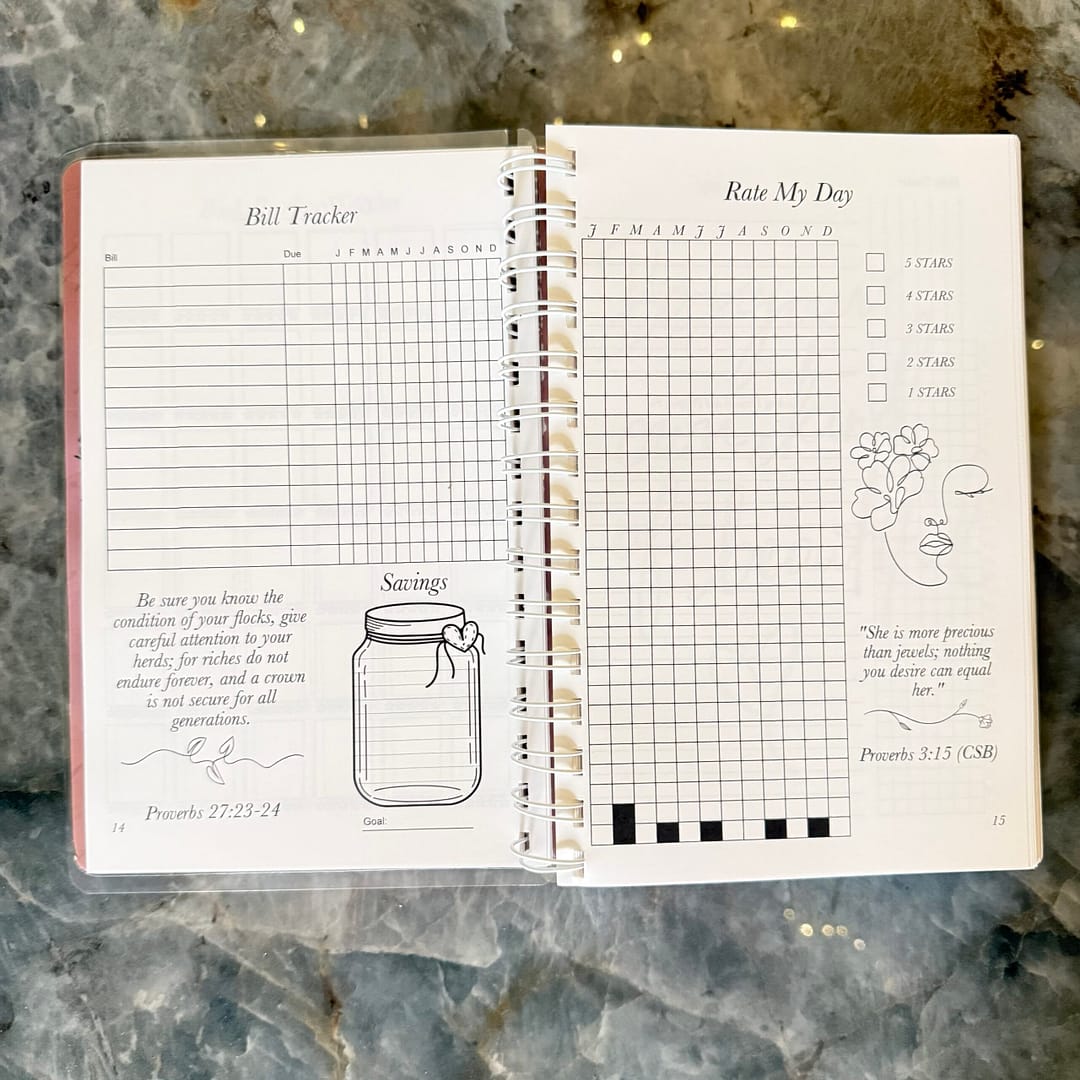 Bill Tracker
Bill Due J F M A M J J A S O N D
Be sure you know the
condition of your flocks, give
careful attention to your
herds; for riches do not
endure forever, and a crown
is not secure for all
generations.
Proverbs 27:23-24
14
Savings
Goal:
Rate My Day
J F M A M J J A S O N D
5 STARS
4 STARS
3 STARS
2 STARS
1 STARS
"She is more precious
than jewels; nothing
you desire can equal
her."
Proverbs 3:15 (CSB)
15